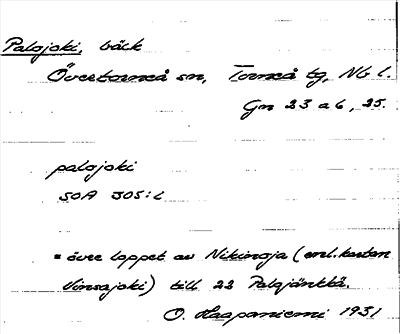 Palojoki, bäck
Övertorneå sn, Torneå tg, Nb l.
Gn 23 a 6, 25.
palojoki
SOA 305:2
= övre loppet av Nikinoja (enl. kartan
Vinsajoki) till 22 Palojänkkä.
O. Haapaniemi 1931